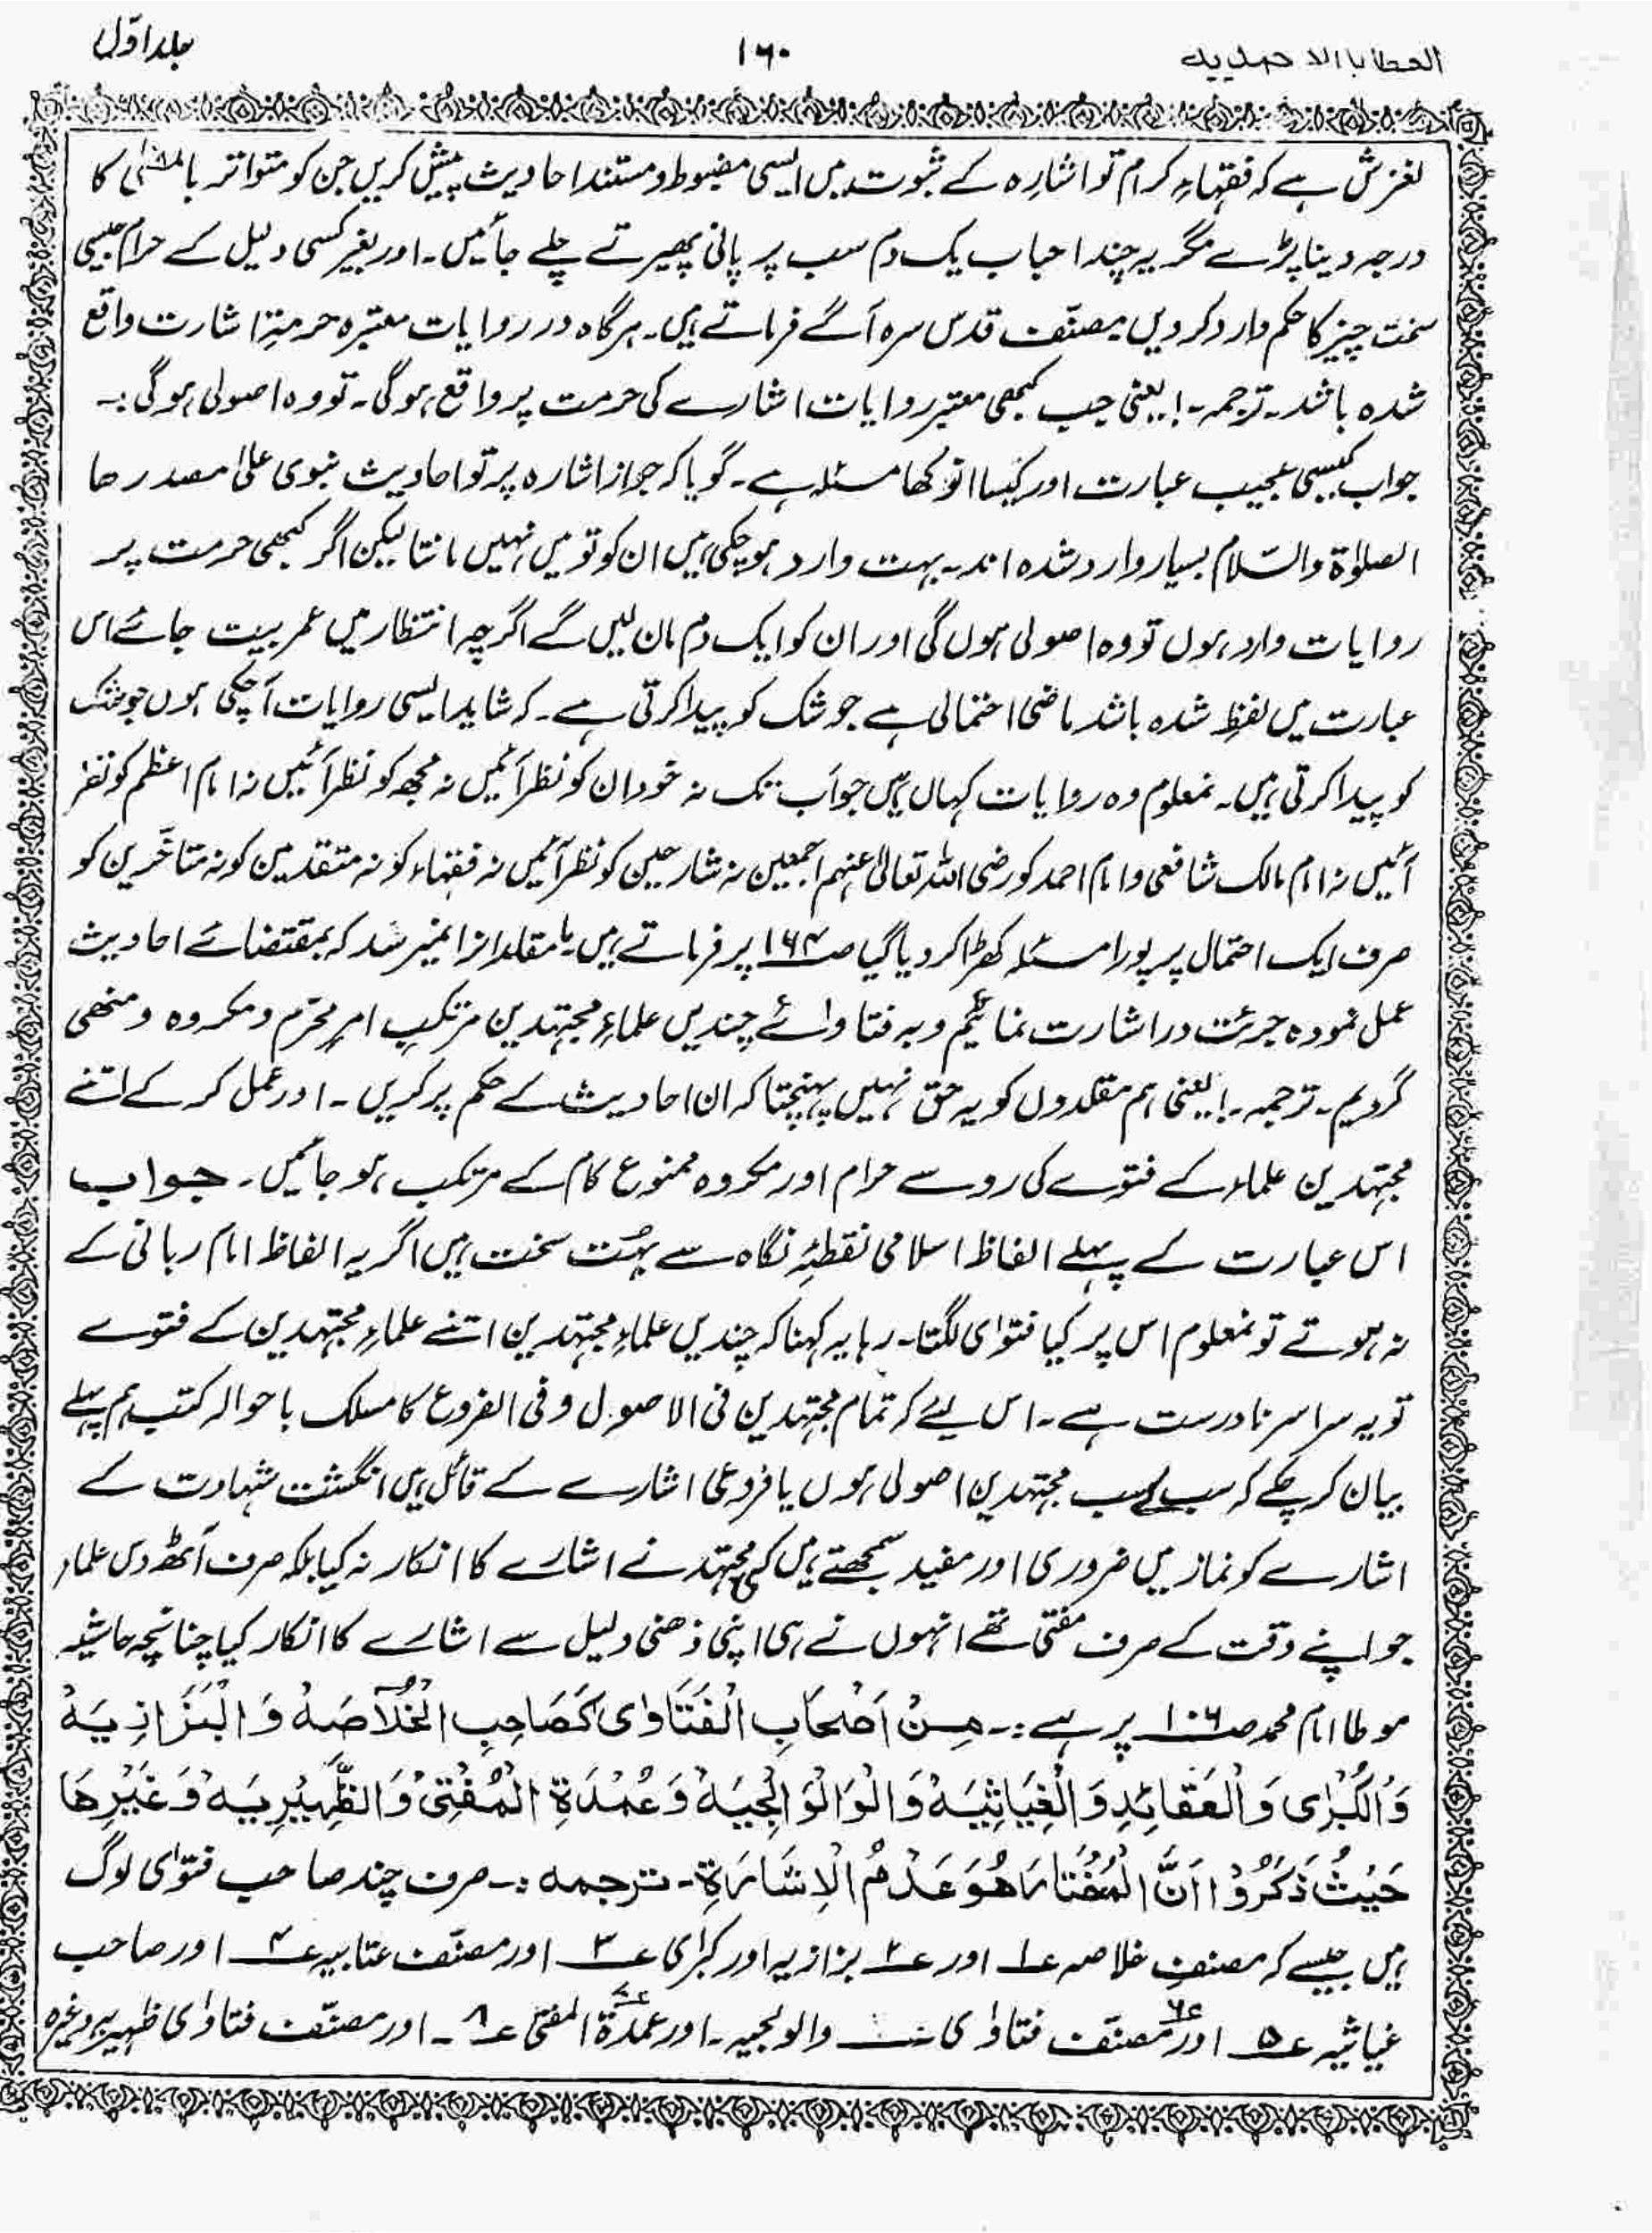 العطایا الاحمدیہ
۱۶۰
جلد اوّل
لغزش ہے کہ فقہاءِ کرام تو اشارہ کے ثبوت میں ایسی مضبوط و مستند احادیث پیش کریں جن کو متواتر بالمعنٰی کا
درجہ دینا پڑے مگر یہ چند احباب یک دم سب پر پانی پھیرتے چلے جائیں۔ اور بغیر کسی دلیل کے حرام جیسی
سخت چیز کا حکم وارد کر دیں مصنّف قدس سرہ آگے فرماتے ہیں۔ ہرگاہ در روایات معتبرہ حرمتِ اشارت واقع
شدہ باشند۔ ترجمہ۔! یعنی جب کبھی معتبر روایات اشارے کی حرمت پر واقع ہوگی۔ تو وہ اصولی ہوگی:۔
جواب کیسی عجیب عبارت اور کیسا انوکھا مسئلہ ہے۔ گویا کہ جواز اشارہ پر تو احادیث نبوی علیٰ مصدرھا
الصلوٰۃ والسّلام بسیار وارد شدہ اند۔ بہت وارد ہو چکی ہیں ان کو تو میں نہیں مانتا لیکن اگر کبھی حرمت پر
روایات وارد ہوں تو وہ اصولی ہوں گی اور ان کو ایک دم مان لیں گے اگرچہ انتظار میں عمر بیت جائے اس
عبارت میں لفظِ شدہ باشد ماضی احتمالی ہے جو شک کو پیدا کرتی ہے۔ کہ شاید ایسی روایات آچکی ہوں جو شک
کو پیدا کرتی ہیں۔ نمعلوم وہ روایات کہاں ہیں جو اَب تک نہ خود ان کو نظر آئیں نہ مجھ کو نظر آئیں نہ امام اعظم کو نظر
آئیں نہ امام مالک شافعی و امام احمد کو رضی اللہ تعالیٰ عنہم اجمعین نہ شارحین کو نظر آئیں نہ فقہاء کو نہ متقدمین کو نہ متأخّرین کو
صرف ایک احتمال پر پورا مسئلہ کھڑا کر دیا گیا صـ۱۶۴ پر فرماتے ہیں۔ مامقلدانرا نمیرسد کہ بمقتضائے احادیث
عمل نمودہ جرئت در اشارت نمائیم و بہ فتاوائے چندیں علماءِ مجتہدین مرتکبِ امرِ محرّم و مکروہ و منھی
گردیم۔ ترجمہ۔! یعنی ہم مقلدوں کو یہ حق نہیں پہنچتا کہ ان احادیث کے حکم پر کریں۔ اور عمل کر کے اتنے
مجتہدین علماء کے فتوے کی رو سے حرام اور مکروہ ممنوع کام کے مرتکب ہو جائیں۔ جواب
اس عبارت کے پہلے الفاظ اسلامی نقطۂِ نگاہ سے بہُت سخت ہیں اگر یہ الفاظ امام ربانی کے
نہ ہوتے تو نمعلوم اس پر کیا فتوٰی لگتا۔ رہا یہ کہنا کہ چندیں علماءِ مجتہدین اتنے علماءِ مجتہدین کے فتوے
تو یہ سراسر نادرست ہے۔ اس لیئے کہ تمام مجتہدین فی الاصول و فی الفروع کا مسلک باحوالہ کتب ہم پہلے
بیان کر چکے کہ سب کے سب مجتہدین اصولی ہوں یا فروعی اشارے کے قائل ہیں انگشت شہادت کے
اشارے کو نماز میں ضروری اور مفید سمجھتے ہیں کسی مجتہد نے اشارے کا انکار نہ کیا بلکہ صرف آٹھ دس علماء
جو اپنے وقت کے صرف مفتی تھے انہوں نے ہی اپنی ذھنی دلیل سے اشارے کا انکار کیا چنانچہ حاشیہ
موطا امام محمد صـ۱۰۶ پر ہے:۔ مِنْ اَصْحَابِ الْفَتَاوٰی کَصَاحِبِ الْخُلَاصَہْ وَالْبَزَازِیَہْ
وَالْکُبْرٰی وَالْعَقَائِدِ وَالْغِیَاثِیَہْ وَالْوَالْوَالْجِیَہْ وَعُمْدَۃِ الْمُفْتِیْ وَالظَّہِیْرِیَہْ وَغَیْرِھَا
حَیْثُ ذَکَرُوْا اَنَّ الْمُخْتَارَ ھُوَ عَدْمُ الْاِشَارَۃِ۔ ترجمہ:۔ صرف چند صاحب فتوٰی لوگ
ہیں جیسے کہ مصنفِ خلاصہ عـ۱ اور عـ۲ بزازیہ اور کبرٰی عـ۳ اور مصنّف عتابیہ عـ۴ اور صاحب
غیاثیہ عـ۵ اور عـ۶ مصنّف فتاوٰی والولجیہ۔ اور عمدۃ المفتی عـ۸۔ اور مصنّف فتاوٰی ظہیریہ وغیرہ